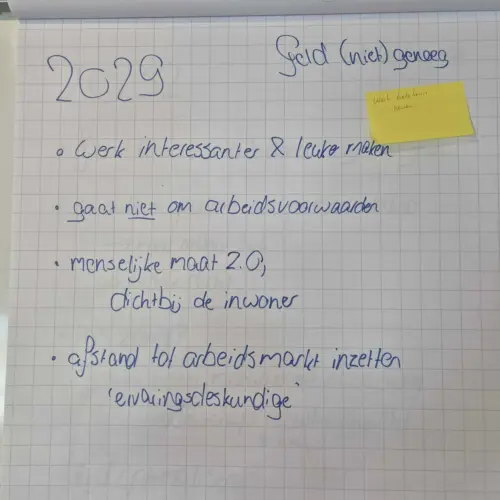 2029
Geld (niet) genoeg
• werk interessanter & leuker maken
• gaat niet om arbeidsvoorwaarden
• menselijke maat 2.0,
dichtbij de inwoner
• afstand tot arbeidsmarkt inzetten
'ervaringsdeskundige'